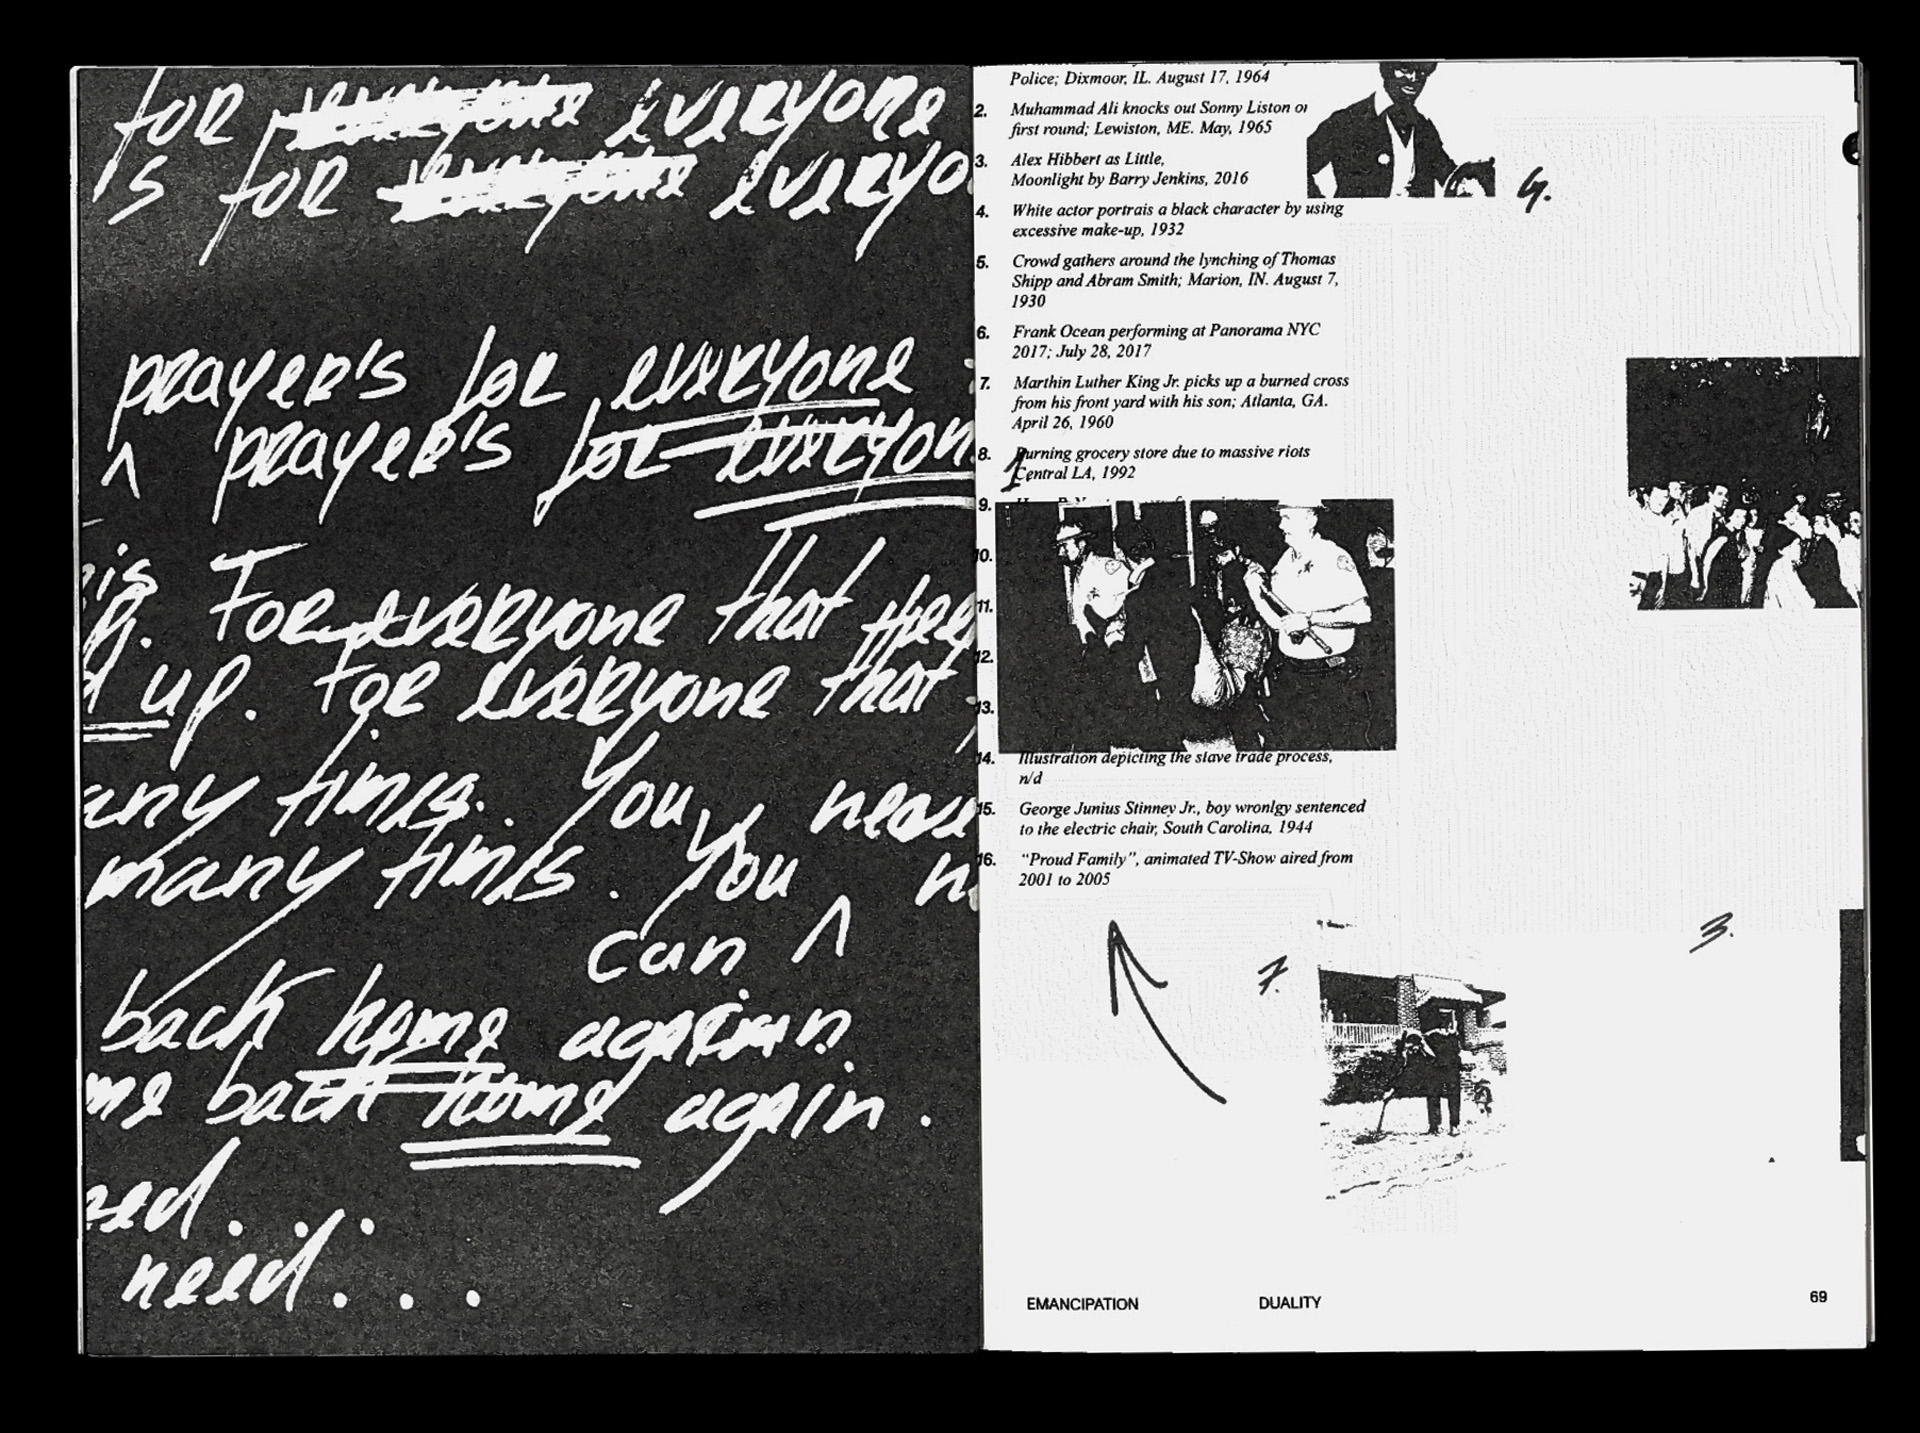 for everyone everyone
is for everyone everyo
prayer's for everyone
^ prayer's for everyon
is For everyone that they
h.
d up. For everyone that
any times. You neve
many times. You n
can ^
back home again
me back home again.
need. . .
need. . .
Police; Dixmoor, IL. August 17, 1964
2. Muhammad Ali knocks out Sonny Liston on
first round; Lewiston, ME. May, 1965
3. Alex Hibbert as Little,
Moonlight by Barry Jenkins, 2016
4. White actor portrais a black character by using
excessive make-up, 1932
5. Crowd gathers around the lynching of Thomas
Shipp and Abram Smith; Marion, IN. August 7,
1930
6. Frank Ocean performing at Panorama NYC
2017; July 28, 2017
7. Marthin Luther King Jr. picks up a burned cross
from his front yard with his son; Atlanta, GA.
April 26, 1960
8. Burning grocery store due to massive riots
Central LA, 1992
1.
9.
10.
11.
12.
13.
14. Illustration depicting the slave trade process,
n/d
15. George Junius Stinney Jr., boy wronlgy sentenced
to the electric chair, South Carolina, 1944
16. "Proud Family", animated TV-Show aired from
2001 to 2005
7.
3.
EMANCIPATION DUALITY 69